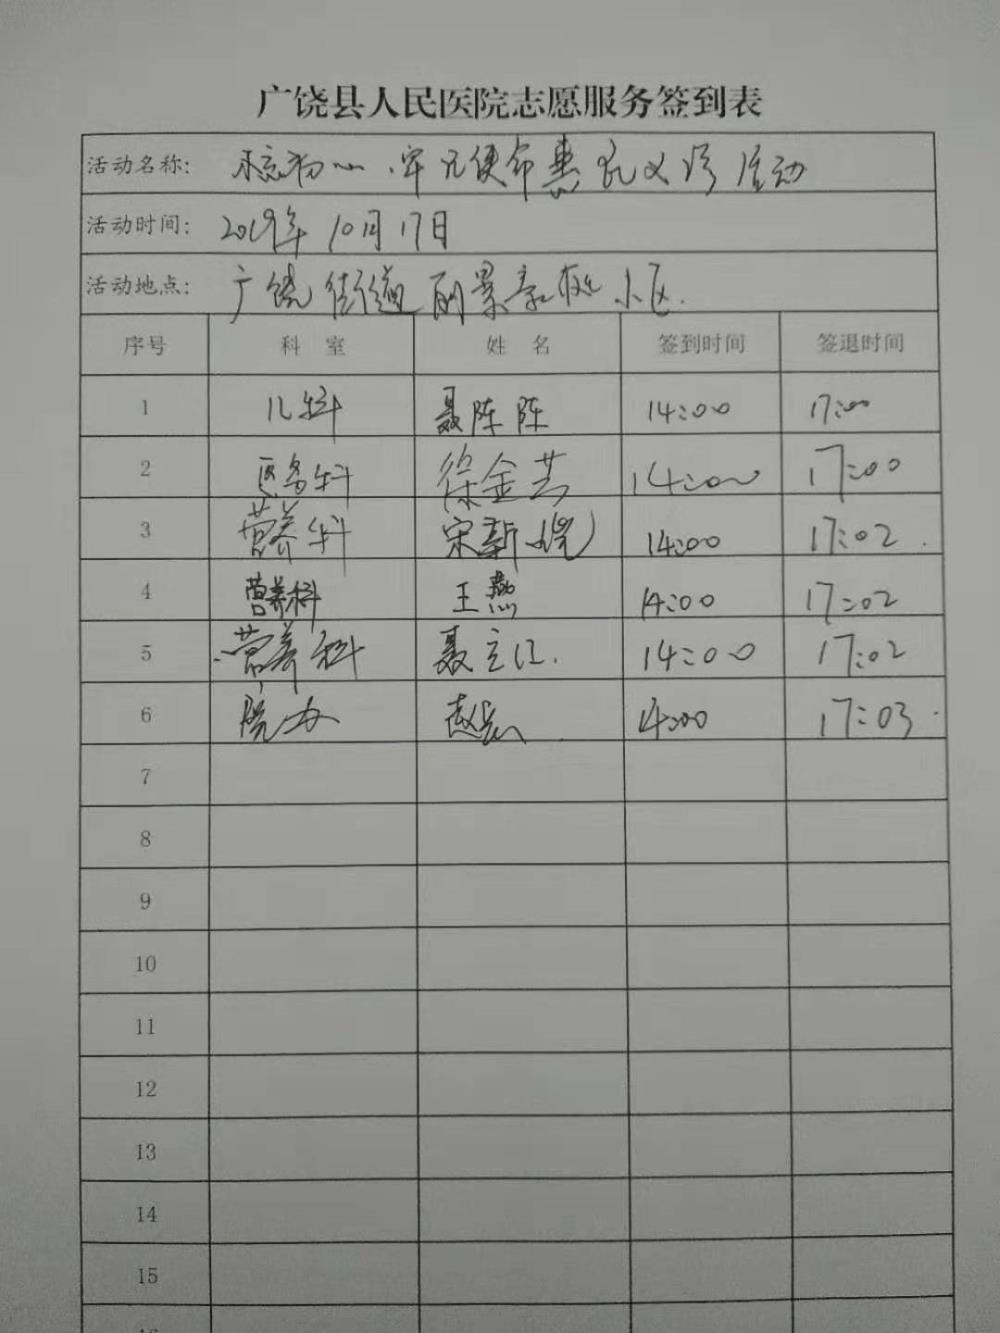 广饶县人民医院志愿服务签到表
活动名称: 不忘初心、牢记使命惠民义诊活动
活动时间: 2019年10月17日
活动地点: 广饶街道丽景豪庭小区.
序号 科室 姓名 签到时间 签退时间
1 儿科 聂陈陈 14:00 17:00
2 医务科 徐金芸 14:00 17:00
3 营养科 宋新婷 14:00 17:02
4 营养科 王燕 14:00 17:02
5 营养科 聂立江. 14:00 17:02
6 院办 14:00 17:03
7
8
9
10
11
12
13
14
15
16